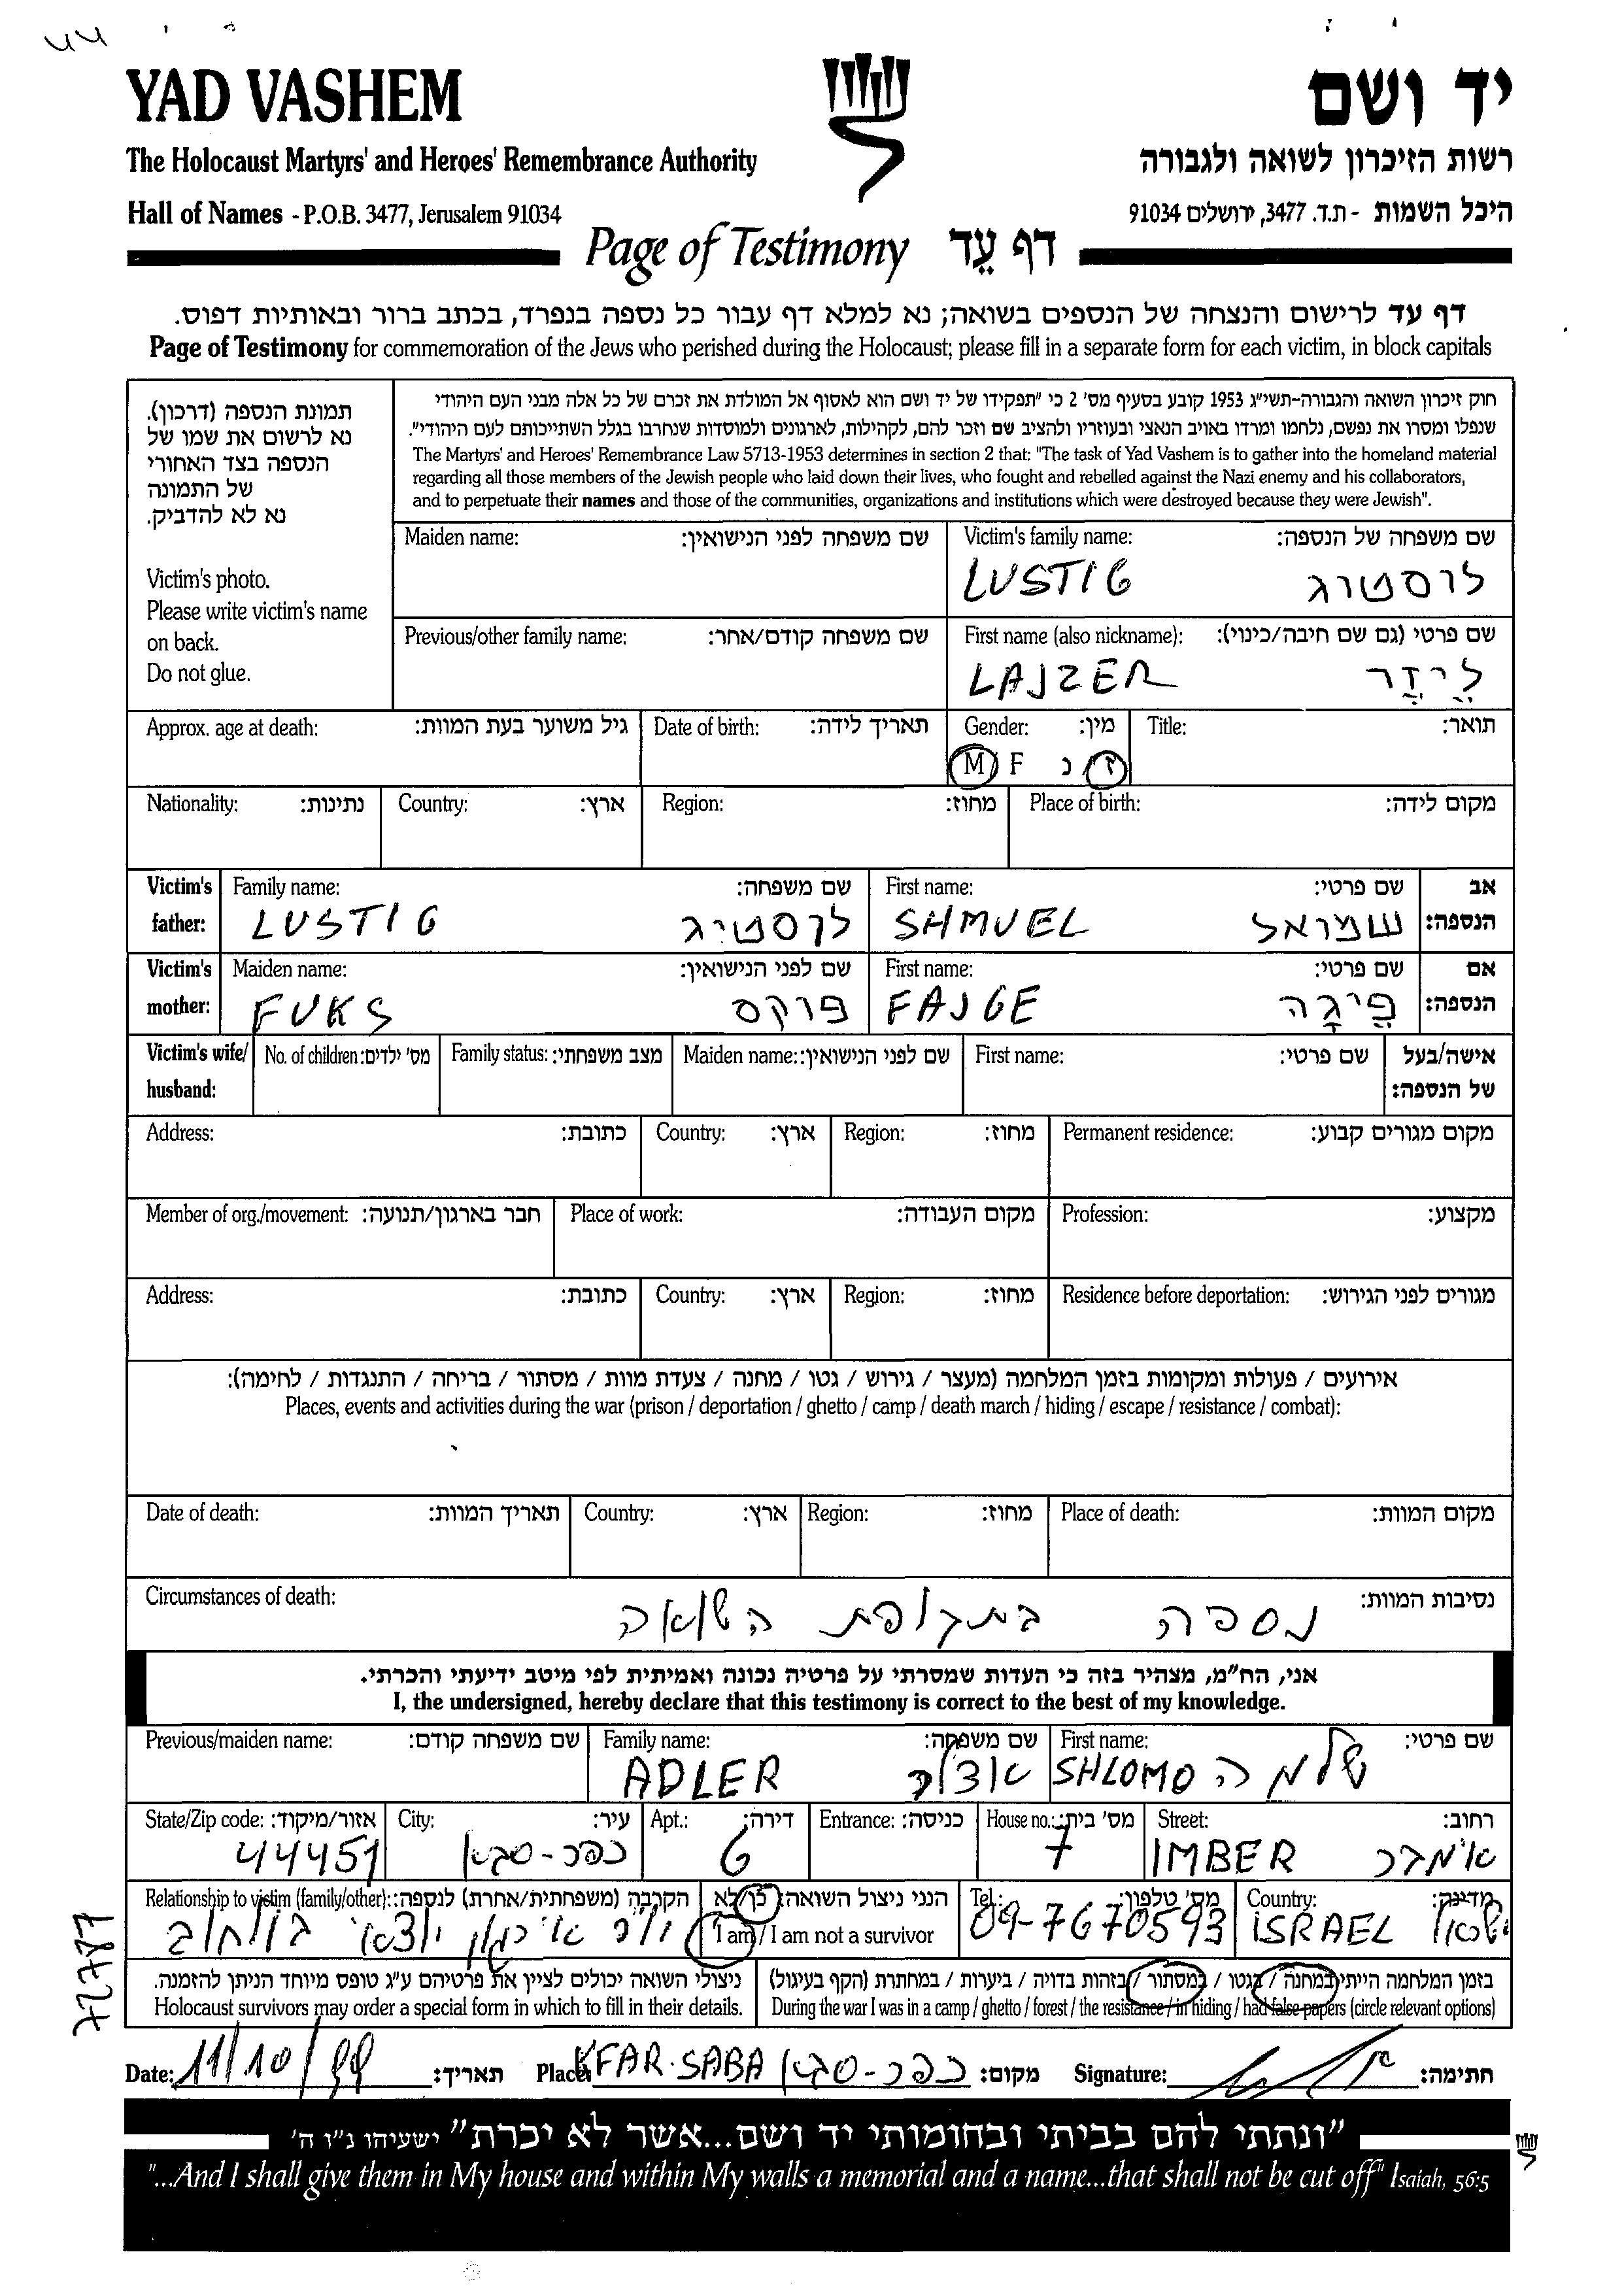 44
YAD VASHEM
יד ושם
The Holocaust Martyrs' and Heroes' Remembrance Authority
רשות הזיכרון לשואה ולגבורה
Hall of Names - P.O.B. 3477, Jerusalem 91034
היכל השמות - ת.ד. 3477, ירושלים 91034
Page of Testimony דף עֵד
דף עד לרישום והנצחה של הנספים בשואה; נא למלא דף עבור כל נספה בנפרד, בכתב ברור ובאותיות דפוס.
Page of Testimony for commemoration of the Jews who perished during the Holocaust; please fill in a separate form for each victim, in block capitals
תמונת הנספה (דרכון).
נא לרשום את שמו של
הנספה בצד האחורי
של התמונה
נא לא להדביק.
Victim's photo.
Please write victim's name
on back.
Do not glue.
חוק זיכרון השואה והגבורה-תשי"ג 1953 קובע בסעיף מס' 2 כי "תפקידו של יד ושם הוא לאסוף אל המולדת את זכרם של כל אלה מבני העם היהודי
שנפלו ומסרו את נפשם, נלחמו ומרדו באויב הנאצי ובעוזריו ולהציב שם וזכר להם, לקהילות, לארגונים ולמוסדות שנחרבו בגלל השתייכותם לעם היהודי".
The Martyrs' and Heroes' Remembrance Law 5713-1953 determines in section 2 that: "The task of Yad Vashem is to gather into the homeland material
regarding all those members of the Jewish people who laid down their lives, who fought and rebelled against the Nazi enemy and his collaborators,
and to perpetuate their names and those of the communities, organizations and institutions which were destroyed because they were Jewish".
Maiden name: שם משפחה לפני הנישואין:
Victim's family name: שם משפחה של הנספה:
LUSTIG לוסטיג
Previous/other family name: שם משפחה קודם/אחר:
First name (also nickname): שם פרטי (גם שם חיבה/כינוי):
LAJZER לַיְזֶר
Approx. age at death: גיל משוער בעת המוות:
Date of birth: תאריך לידה:
Gender: מין:
M F נ / ז
Title: תואר:
Nationality: נתינות:
Country: ארץ:
Region: מחוז:
Place of birth: מקום לידה:
Victim's father:
Family name: שם משפחה:
LUSTIG לוסטיג
First name: שם פרטי:
SHMUEL שמואל
אב הנספה:
Victim's mother:
Maiden name: שם לפני הנישואין:
FUKS פוקס
First name: שם פרטי:
FAJGE פַיְגָה
אם הנספה:
Victim's wife/ husband:
No. of children: מס' ילדים:
Family status: מצב משפחתי:
Maiden name: שם לפני הנישואין:
First name: שם פרטי:
אישה/בעל של הנספה:
Address: כתובת:
Country: ארץ:
Region: מחוז:
Permanent residence: מקום מגורים קבוע:
Member of org./movement: חבר בארגון/תנועה:
Place of work: מקום העבודה:
Profession: מקצוע:
Address: כתובת:
Country: ארץ:
Region: מחוז:
Residence before deportation: מגורים לפני הגירוש:
אירועים / פעולות ומקומות בזמן המלחמה (מעצר / גירוש / גטו / מחנה / צעדת מוות / מסתור / בריחה / התנגדות / לחימה):
Places, events and activities during the war (prison / deportation / ghetto / camp / death march / hiding / escape / resistance / combat):
Date of death: תאריך המוות:
Country: ארץ:
Region: מחוז:
Place of death: מקום המוות:
Circumstances of death: נסיבות המוות:
נספה בתקופת השואה
אני, הח"מ, מצהיר בזה כי העדות שמסרתי על פרטיה נכונה ואמיתית לפי מיטב ידיעתי והכרתי.
I, the undersigned, hereby declare that this testimony is correct to the best of my knowledge.
Previous/maiden name: שם משפחה קודם:
Family name: שם משפחה:
ADLER אדלר
First name: שם פרטי:
SHLOMO שלמה
State/Zip code: אזור/מיקוד:
44451
City: עיר:
כפר-סבא
Apt.: דירה:
6
Entrance: כניסה:
House no.: מס' בית:
7
Street: רחוב:
IMBER אימבר
Relationship to victim (family/other): הקרבה (משפחתית/אחרת) לנספה:
יו"ר אירגון יוצאי בולחוב
הנני ניצול השואה: כן/לא
I am / I am not a survivor
Tel.: מס' טלפון:
09-7670593
Country: מדינה:
ISRAEL ישראל
ניצולי השואה יכולים לציין את פרטיהם ע"ג טופס מיוחד הניתן להזמנה.
Holocaust survivors may order a special form in which to fill in their details.
בזמן המלחמה הייתי במחנה / בגטו / במסתור / בזהות בדויה / ביערות / במחתרת (הקף בעיגול)
During the war I was in a camp / ghetto / forest / the resistance / in hiding / had false papers (circle relevant options)
72787
Date: 11/10/99 תאריך:
Place: KFAR-SABA כפר-סבא מקום:
Signature: חתימה:
"ונתתי להם בביתי ובחומותי יד ושם...אשר לא יכרת" ישעיהו נ"ו ה'
"...And I shall give them in My house and within My walls a memorial and a name...that shall not be cut off" Isaiah, 56:5